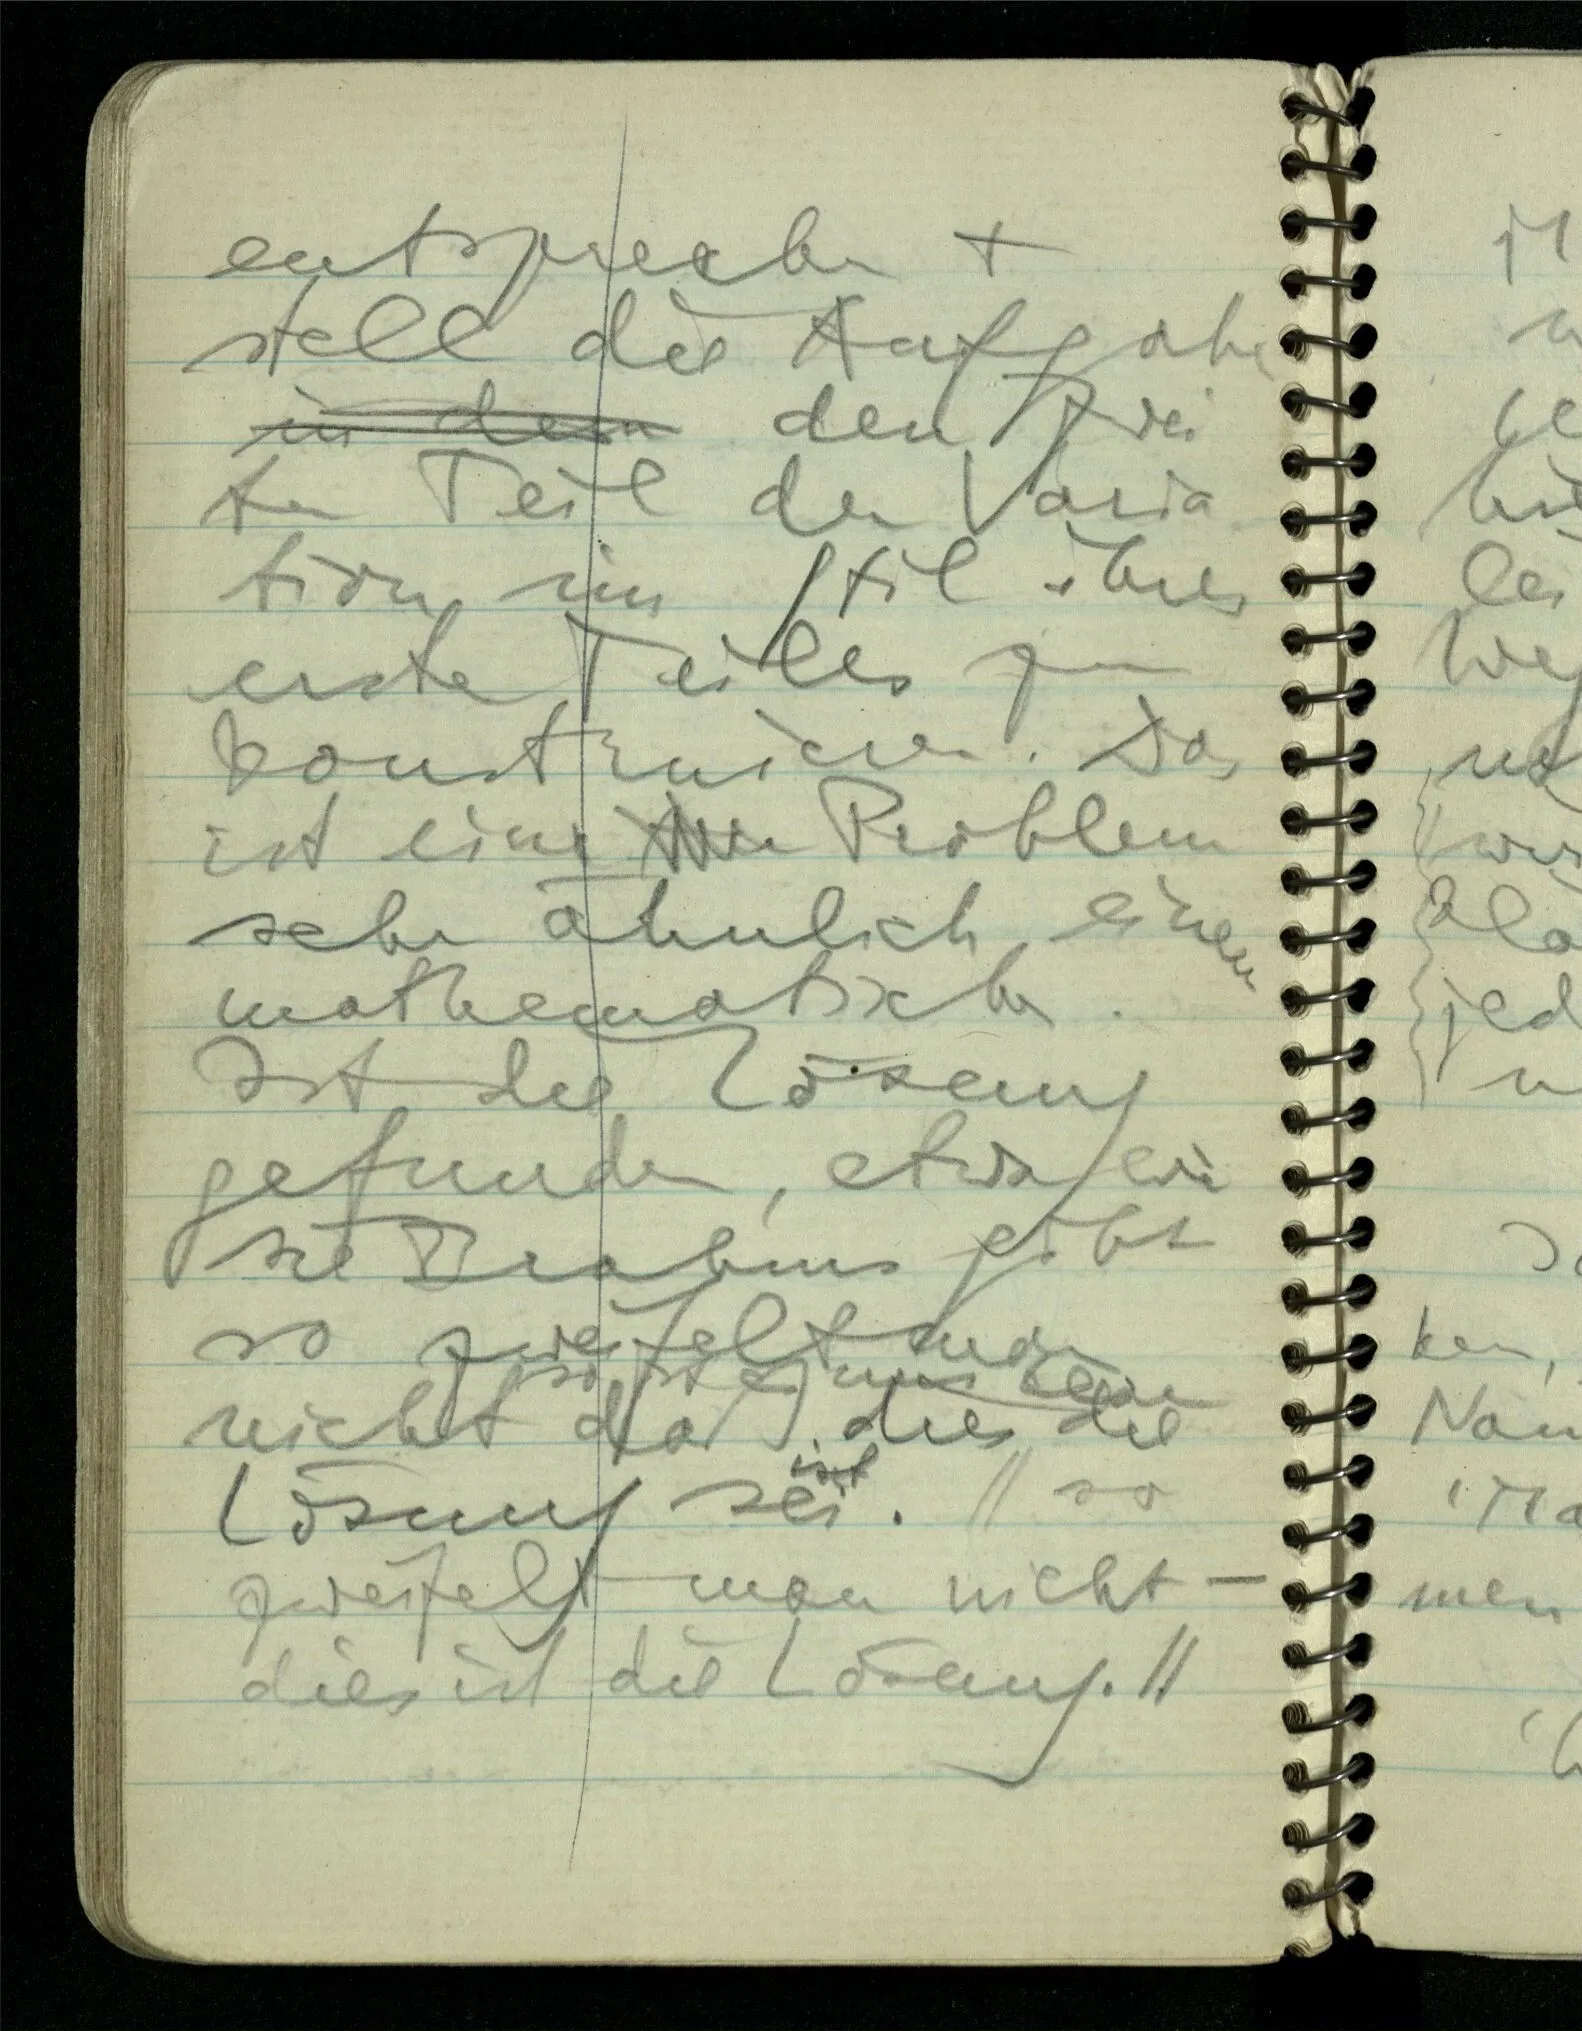 entsprechen +
stell die Aufgabe
in dem den zwei
ten Teil der Varia
tion im Stil ihres
ersten Teiles zu
konstruieren. Das
ist eine Problem
sehr ähnlich einem
mathematischen.
Ist die Lösung
gefunden, etwa wie
sie Brahms gibt
so zweifelt man
nicht daß dies die
ist
Lösung sei. // so
zweifelt man nicht –
dies ist die Lösung. //
ken,
men